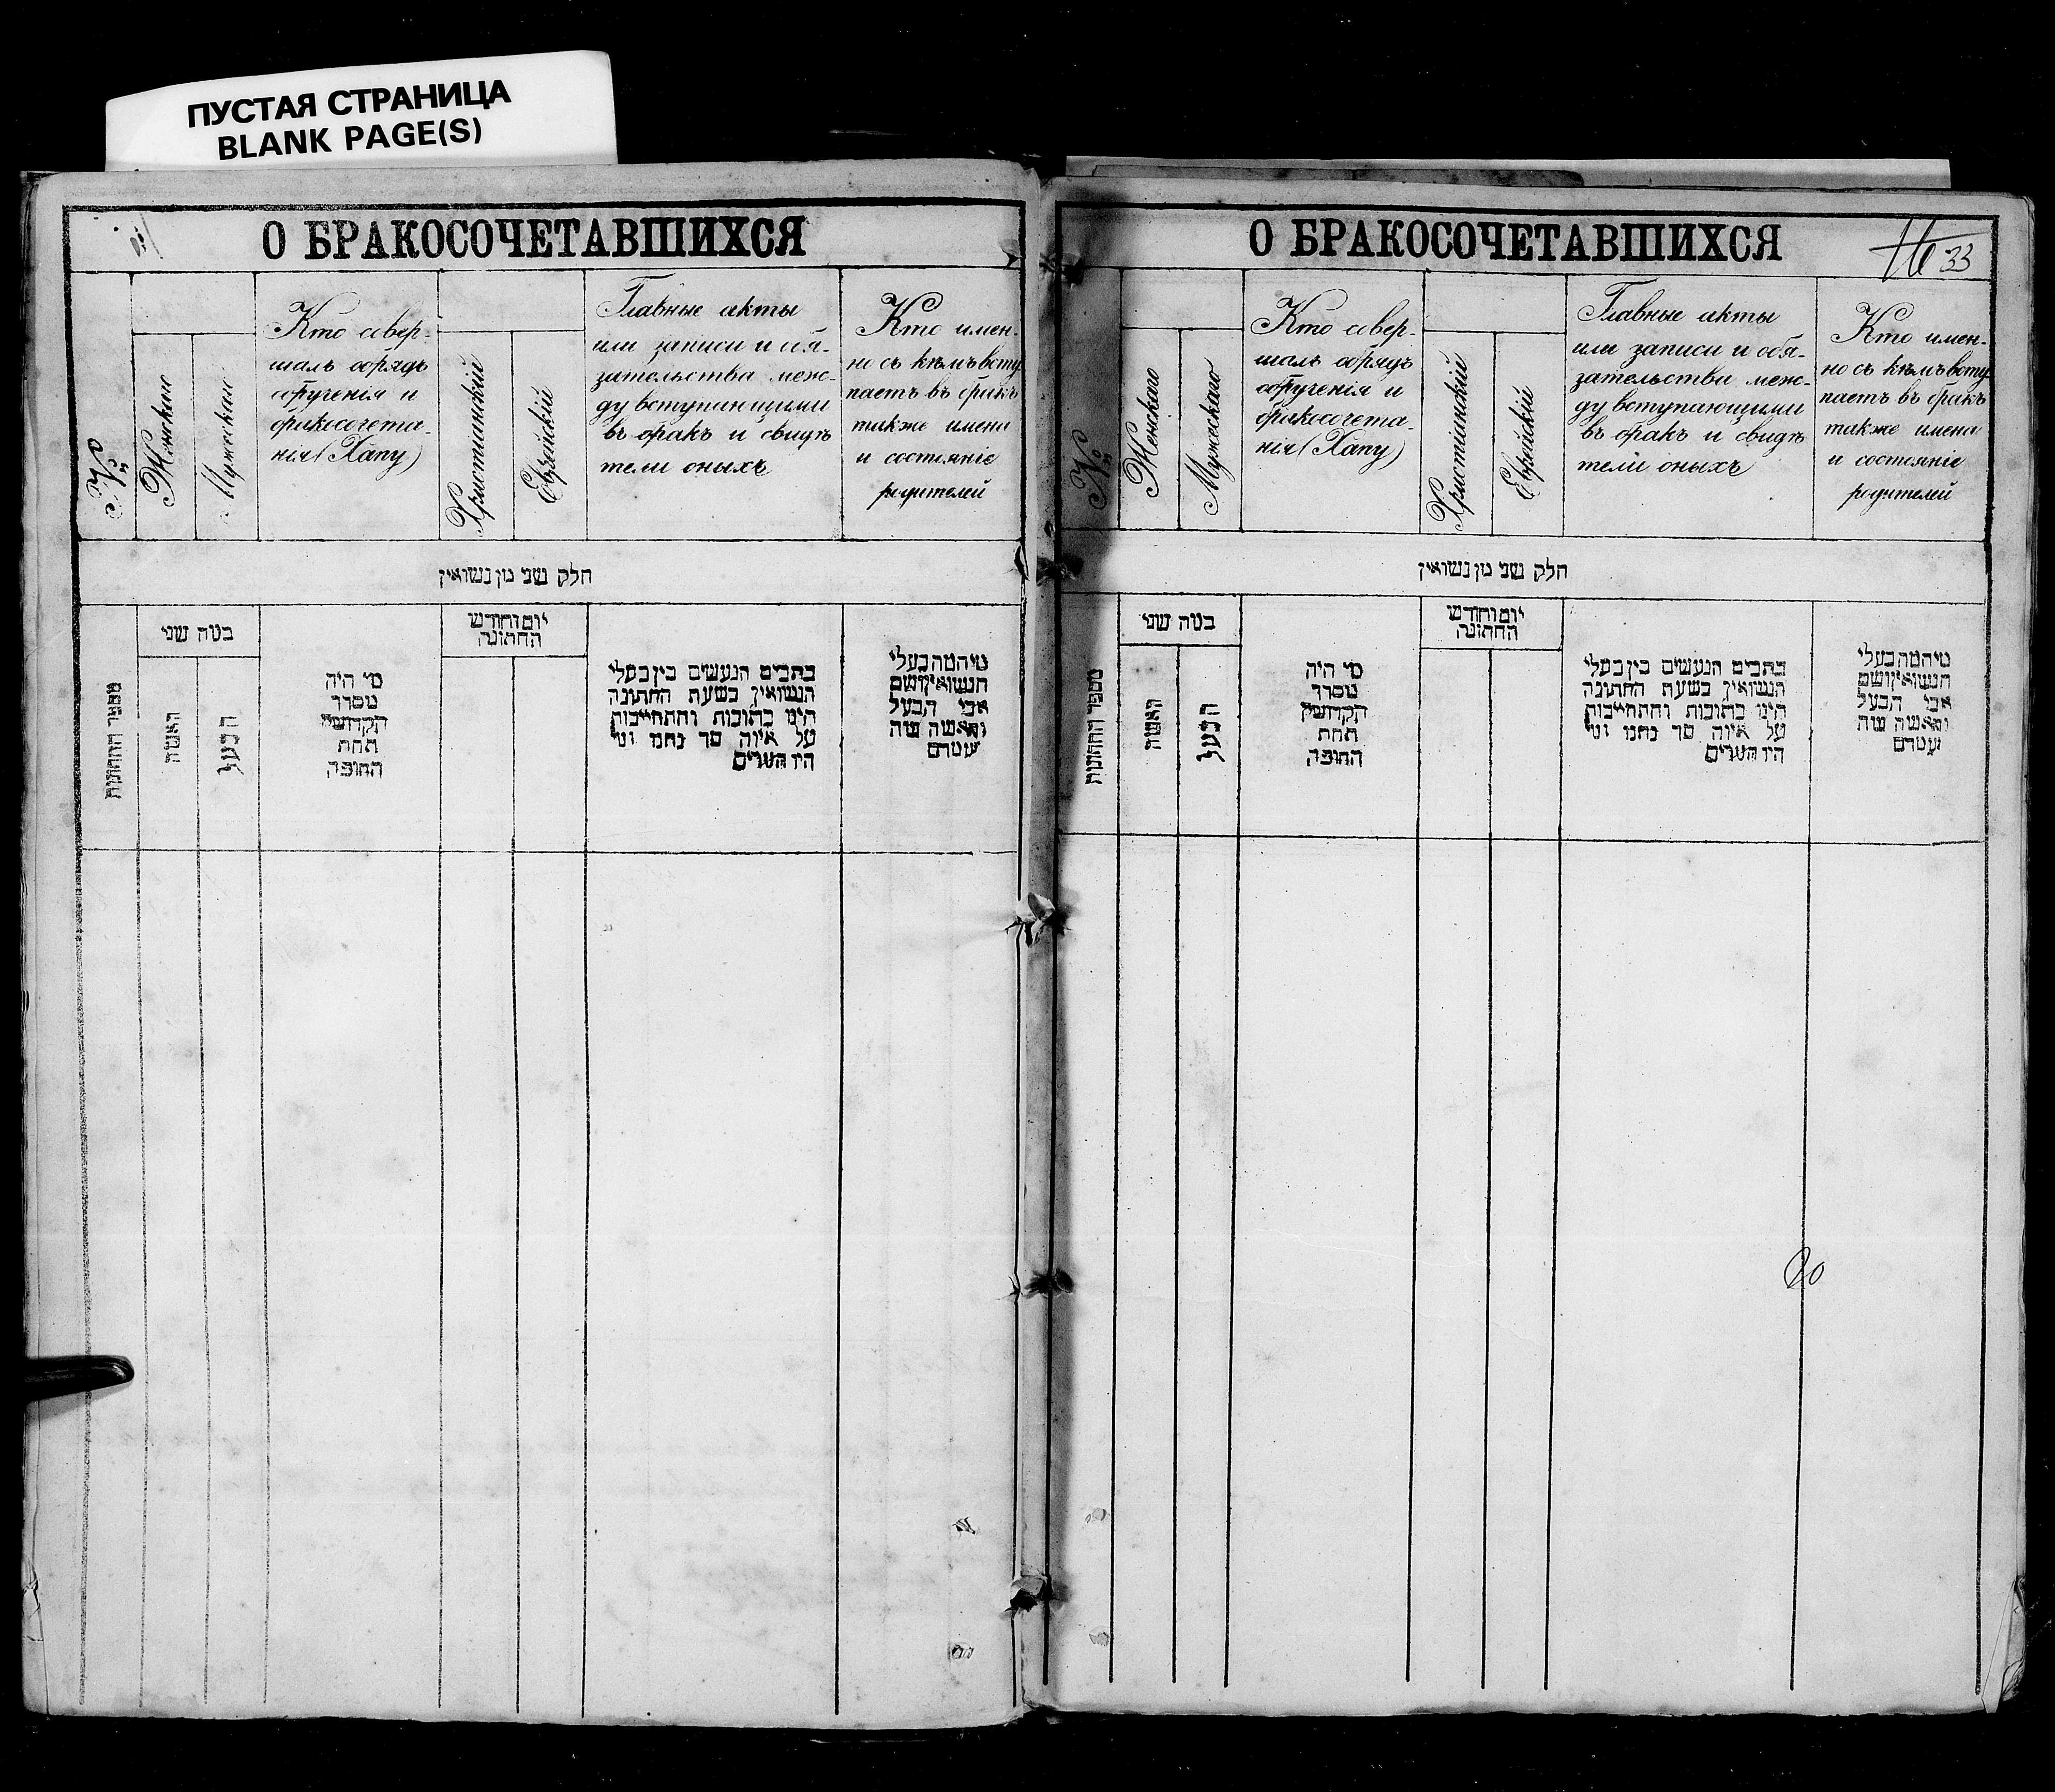 ПУСТАЯ СТРАНИЦА
BLANK PAGE(S)
О БРАКОСОЧЕТАВШИХСЯ
№
Женскаго
Мужескаго
Кто совер-
шалъ обрядъ
обрученія и
бракосочета-
нія (Хапу)
Христіанскій
Еврейскій
Главные акты
или записи и обя-
зательства меж-
ду вступающими
въ бракъ и свидѣ
тели оныхъ
Кто имен-
но съ кѣмъ всту
паетъ въ бракъ
также имена
и состояніе
родителей
חלק שני מן נשואין
מספר החתונות
במה שני
האשה
הבעל
מי היה
מסדר
הקדושין
תחת
החופה
יום וחודש
החתונה
כתבים הנעשים בין בעלי
הנשואין בשעת החתונה
היינו כתובות והתחייבות
על איזה סך נתנו ומי
היו העדים
מי המה בעלי
הנשואין ושם
אבי הבעל
והאשה ומה
מעמדם
О БРАКОСОЧЕТАВШИХСЯ
16 33
№
Женскаго
Мужескаго
Кто совер-
шалъ обрядъ
обрученія и
бракосочета-
нія (Хапу)
Христіанскій
Еврейскій
Главные акты
или записи и обя-
зательства меж-
ду вступающими
въ бракъ и свидѣ
тели оныхъ
Кто имен-
но съ кѣмъ всту
паетъ въ бракъ
также имена
и состояніе
родителей
חלק שני מן נשואין
מספר החתונות
במה שני
האשה
הבעל
מי היה
מסדר
הקדושין
תחת
החופה
יום וחודש
החתונה
כתבים הנעשים בין בעלי
הנשואין בשעת החתונה
היינו כתובות והתחייבות
על איזה סך נתנו ומי
היו העדים
מי המה בעלי
הנשואין ושם
אבי הבעל
והאשה ומה
מעמדם
20